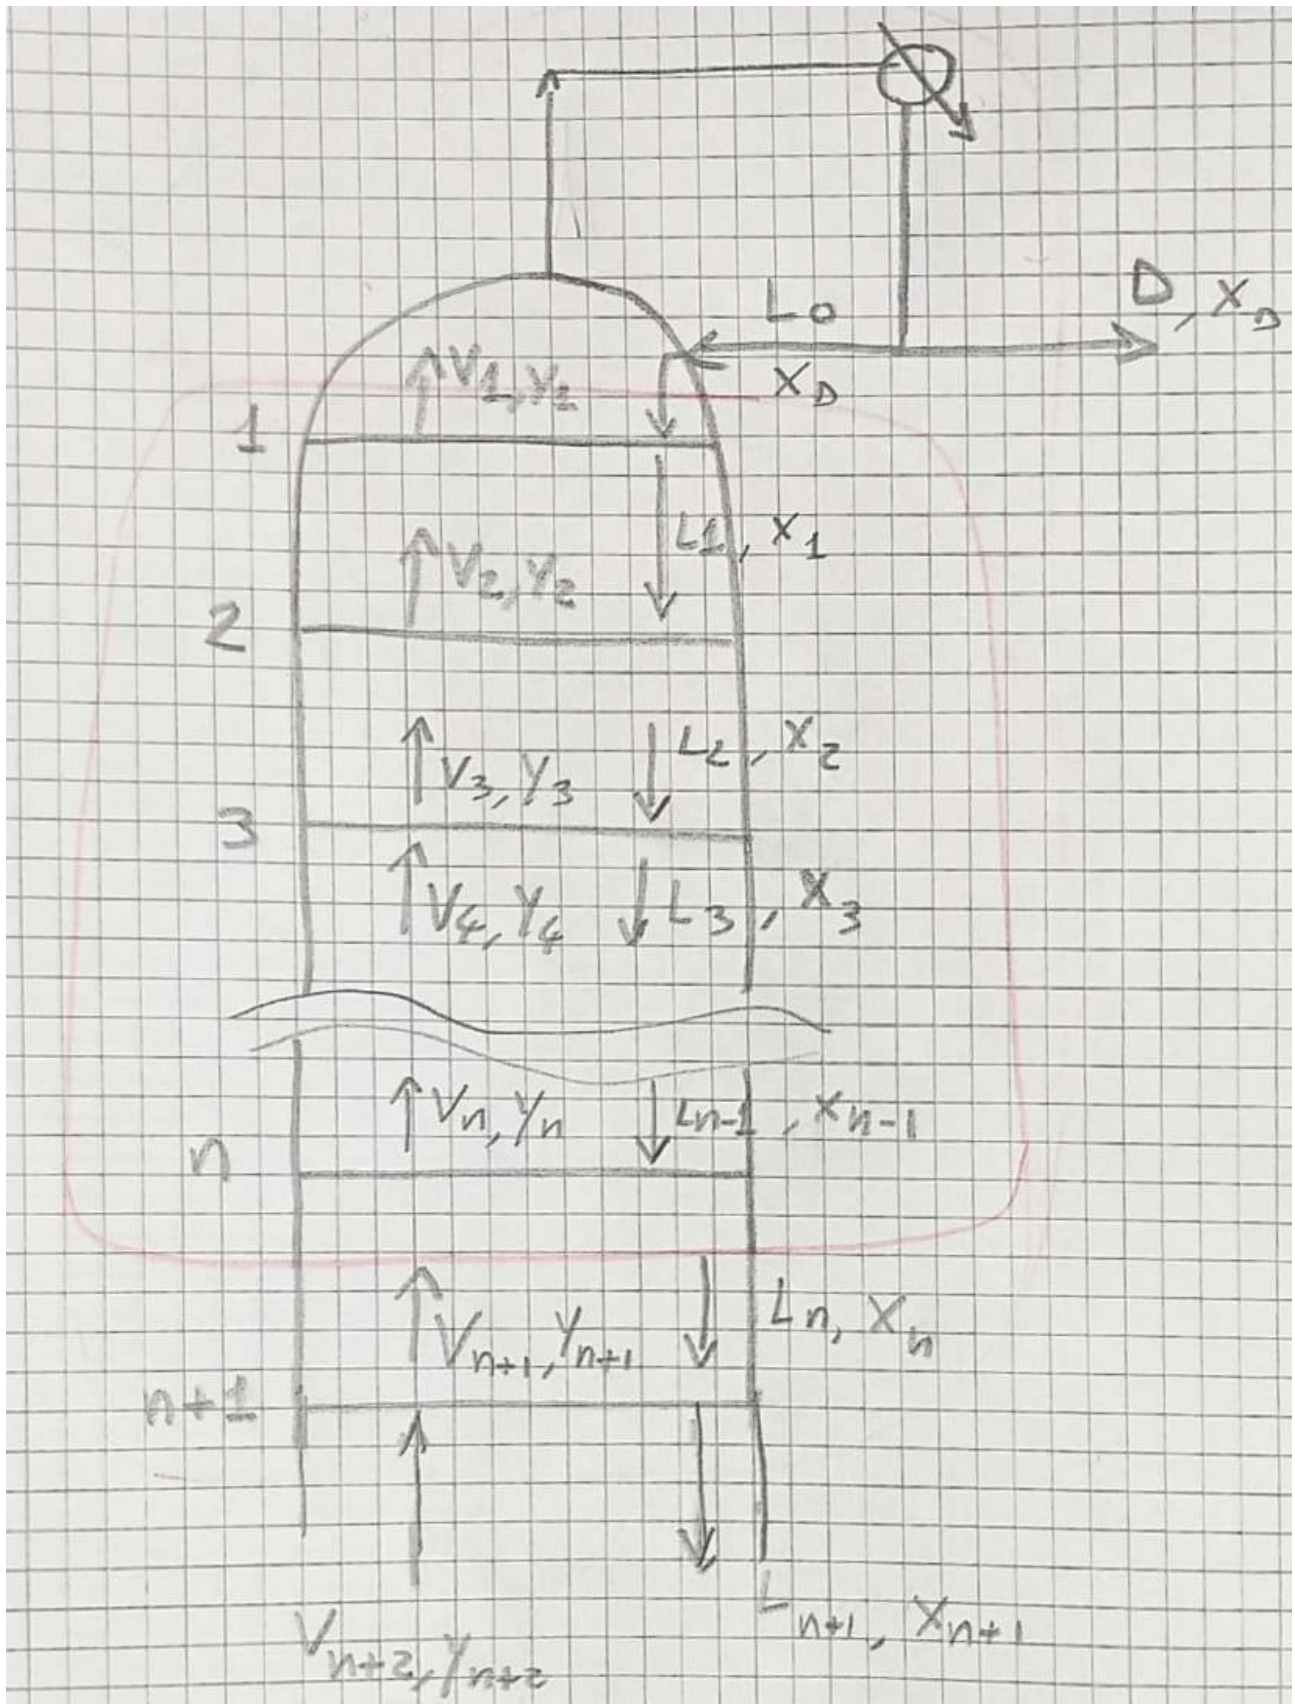 L0
D, XD
XD
V1, Y1
1
L1, X1
V2, Y2
2
L2, X2
V3, Y3
3
V4, Y4
L3, X3
Vn, Yn
Ln-1, Xn-1
n
Ln, Xn
Vn+1, Yn+1
n+1
Ln+1, Xn+1
Vn+2, Yn+2